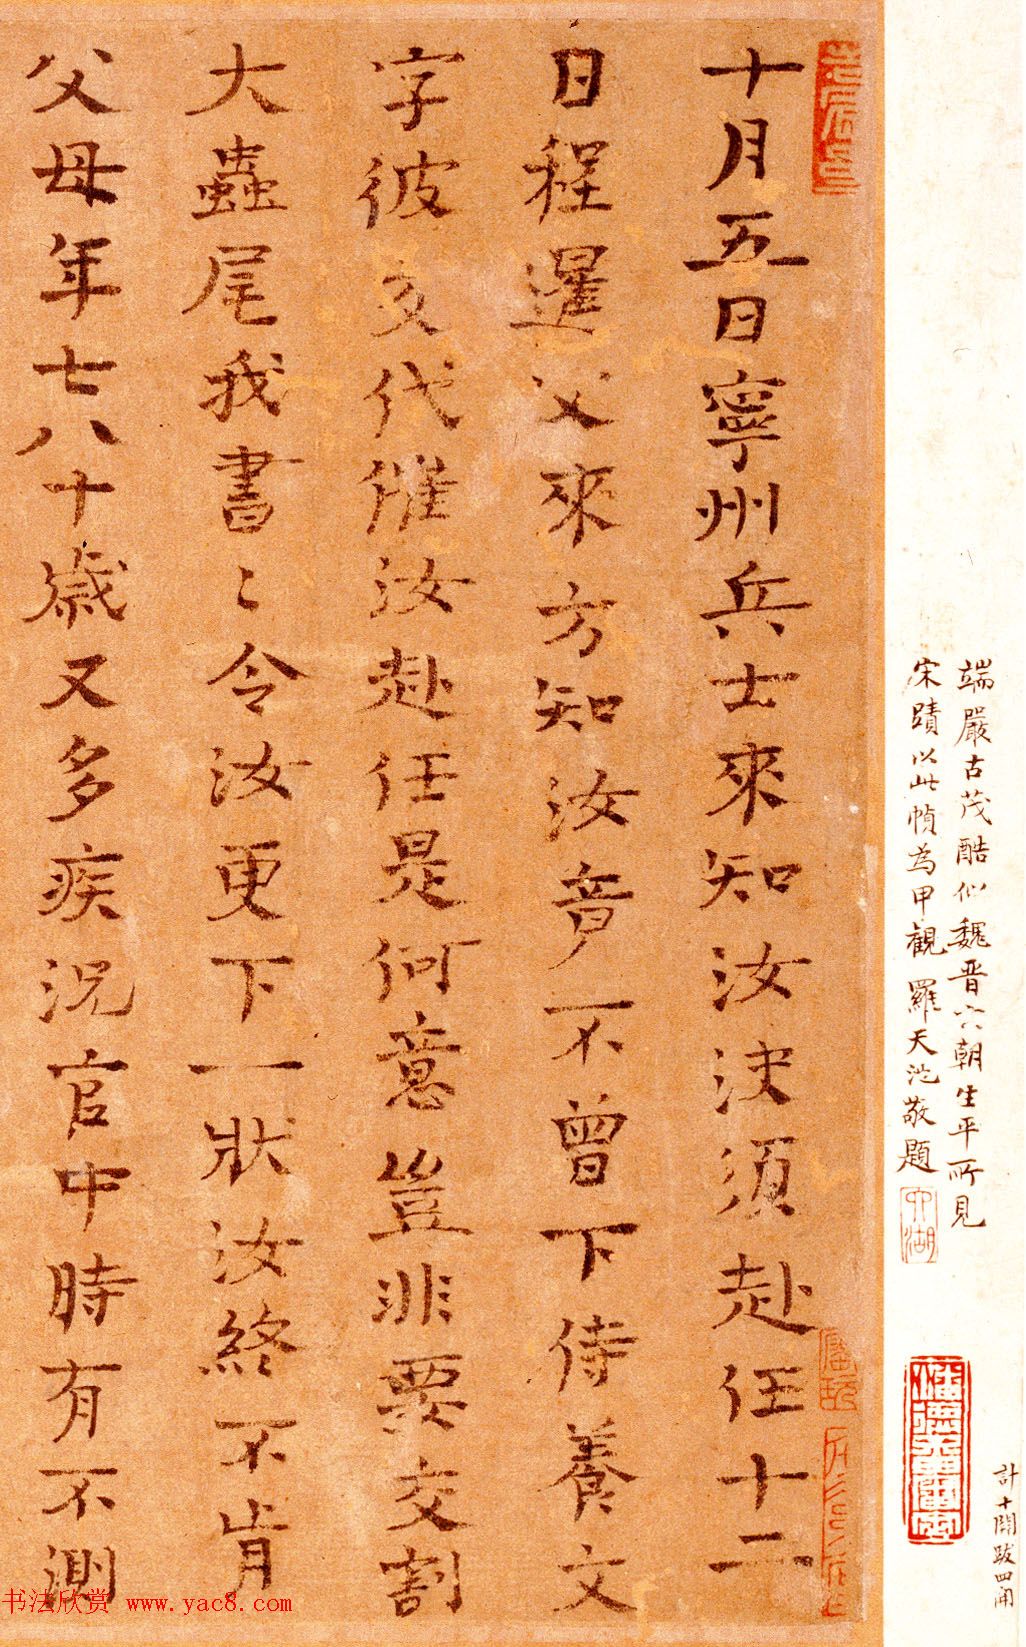 端嚴古茂酷似魏晋六朝生平所見
宋蹟以此幀為甲觀 羅天池敬題
六湖
計十開跋四開
十月五日寧州兵士來知汝決須赴任十二
日程暹父來方知汝音聲不曾下侍養文
字彼交代催汝赴任是何意豈非要交割
大蟲尾我書〻令汝更下一狀汝終不肯
父母年七八十歲又多疾況官中時有不測
书法欣赏 www.yac8.com